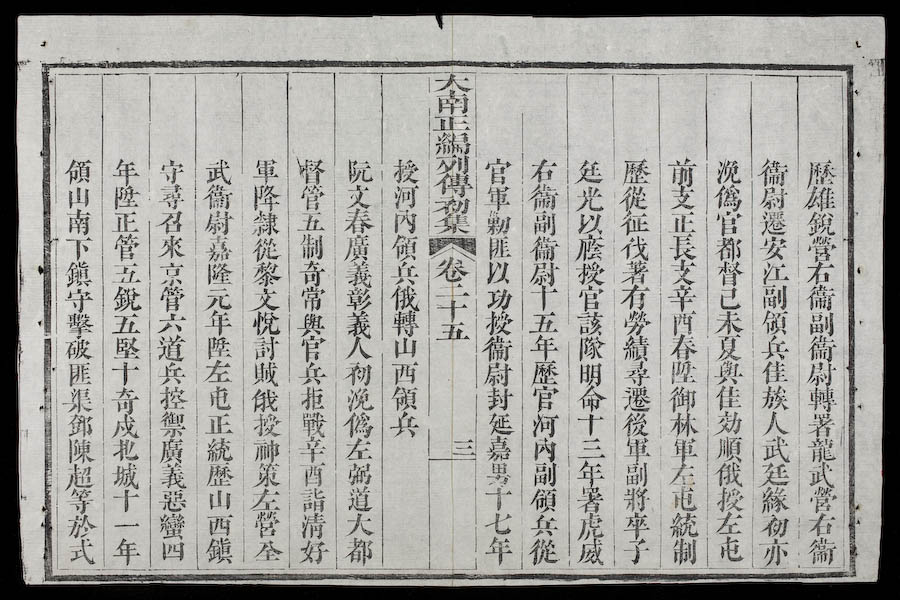 歷雄銳營右衞副衞尉轉署龍武營右衞
衞尉遷安江副領兵佳族人武廷緣初亦
浼僞官都督己未夏與佳効順俄授左屯
前支正長支辛酉春陞御林軍左屯統制
歷從征伐著有勞績尋遷後軍副將卒子
廷光以廕授官該隊明命十三年署虎威
右衞副衞尉十五年歷官河內副領兵從
官軍勦匪以功授衞尉封延嘉男十七年
大南正編列傳初集 卷二十五 三
授河內領兵俄轉山西領兵
阮文春廣義彰義人初浼僞左弼道大都
督管五制奇常與官兵拒戰辛酉詣清好
軍降隷從黎文悅討賊俄授神策左營全
武衞尉嘉隆元年陞左屯正統歷山西鎭
守尋召來京管六道兵控禦廣義惡蠻四
年陞正管五銳五堅十奇戍北城十一年
領山南下鎭守擊破匪渠鄧陳超等於弍